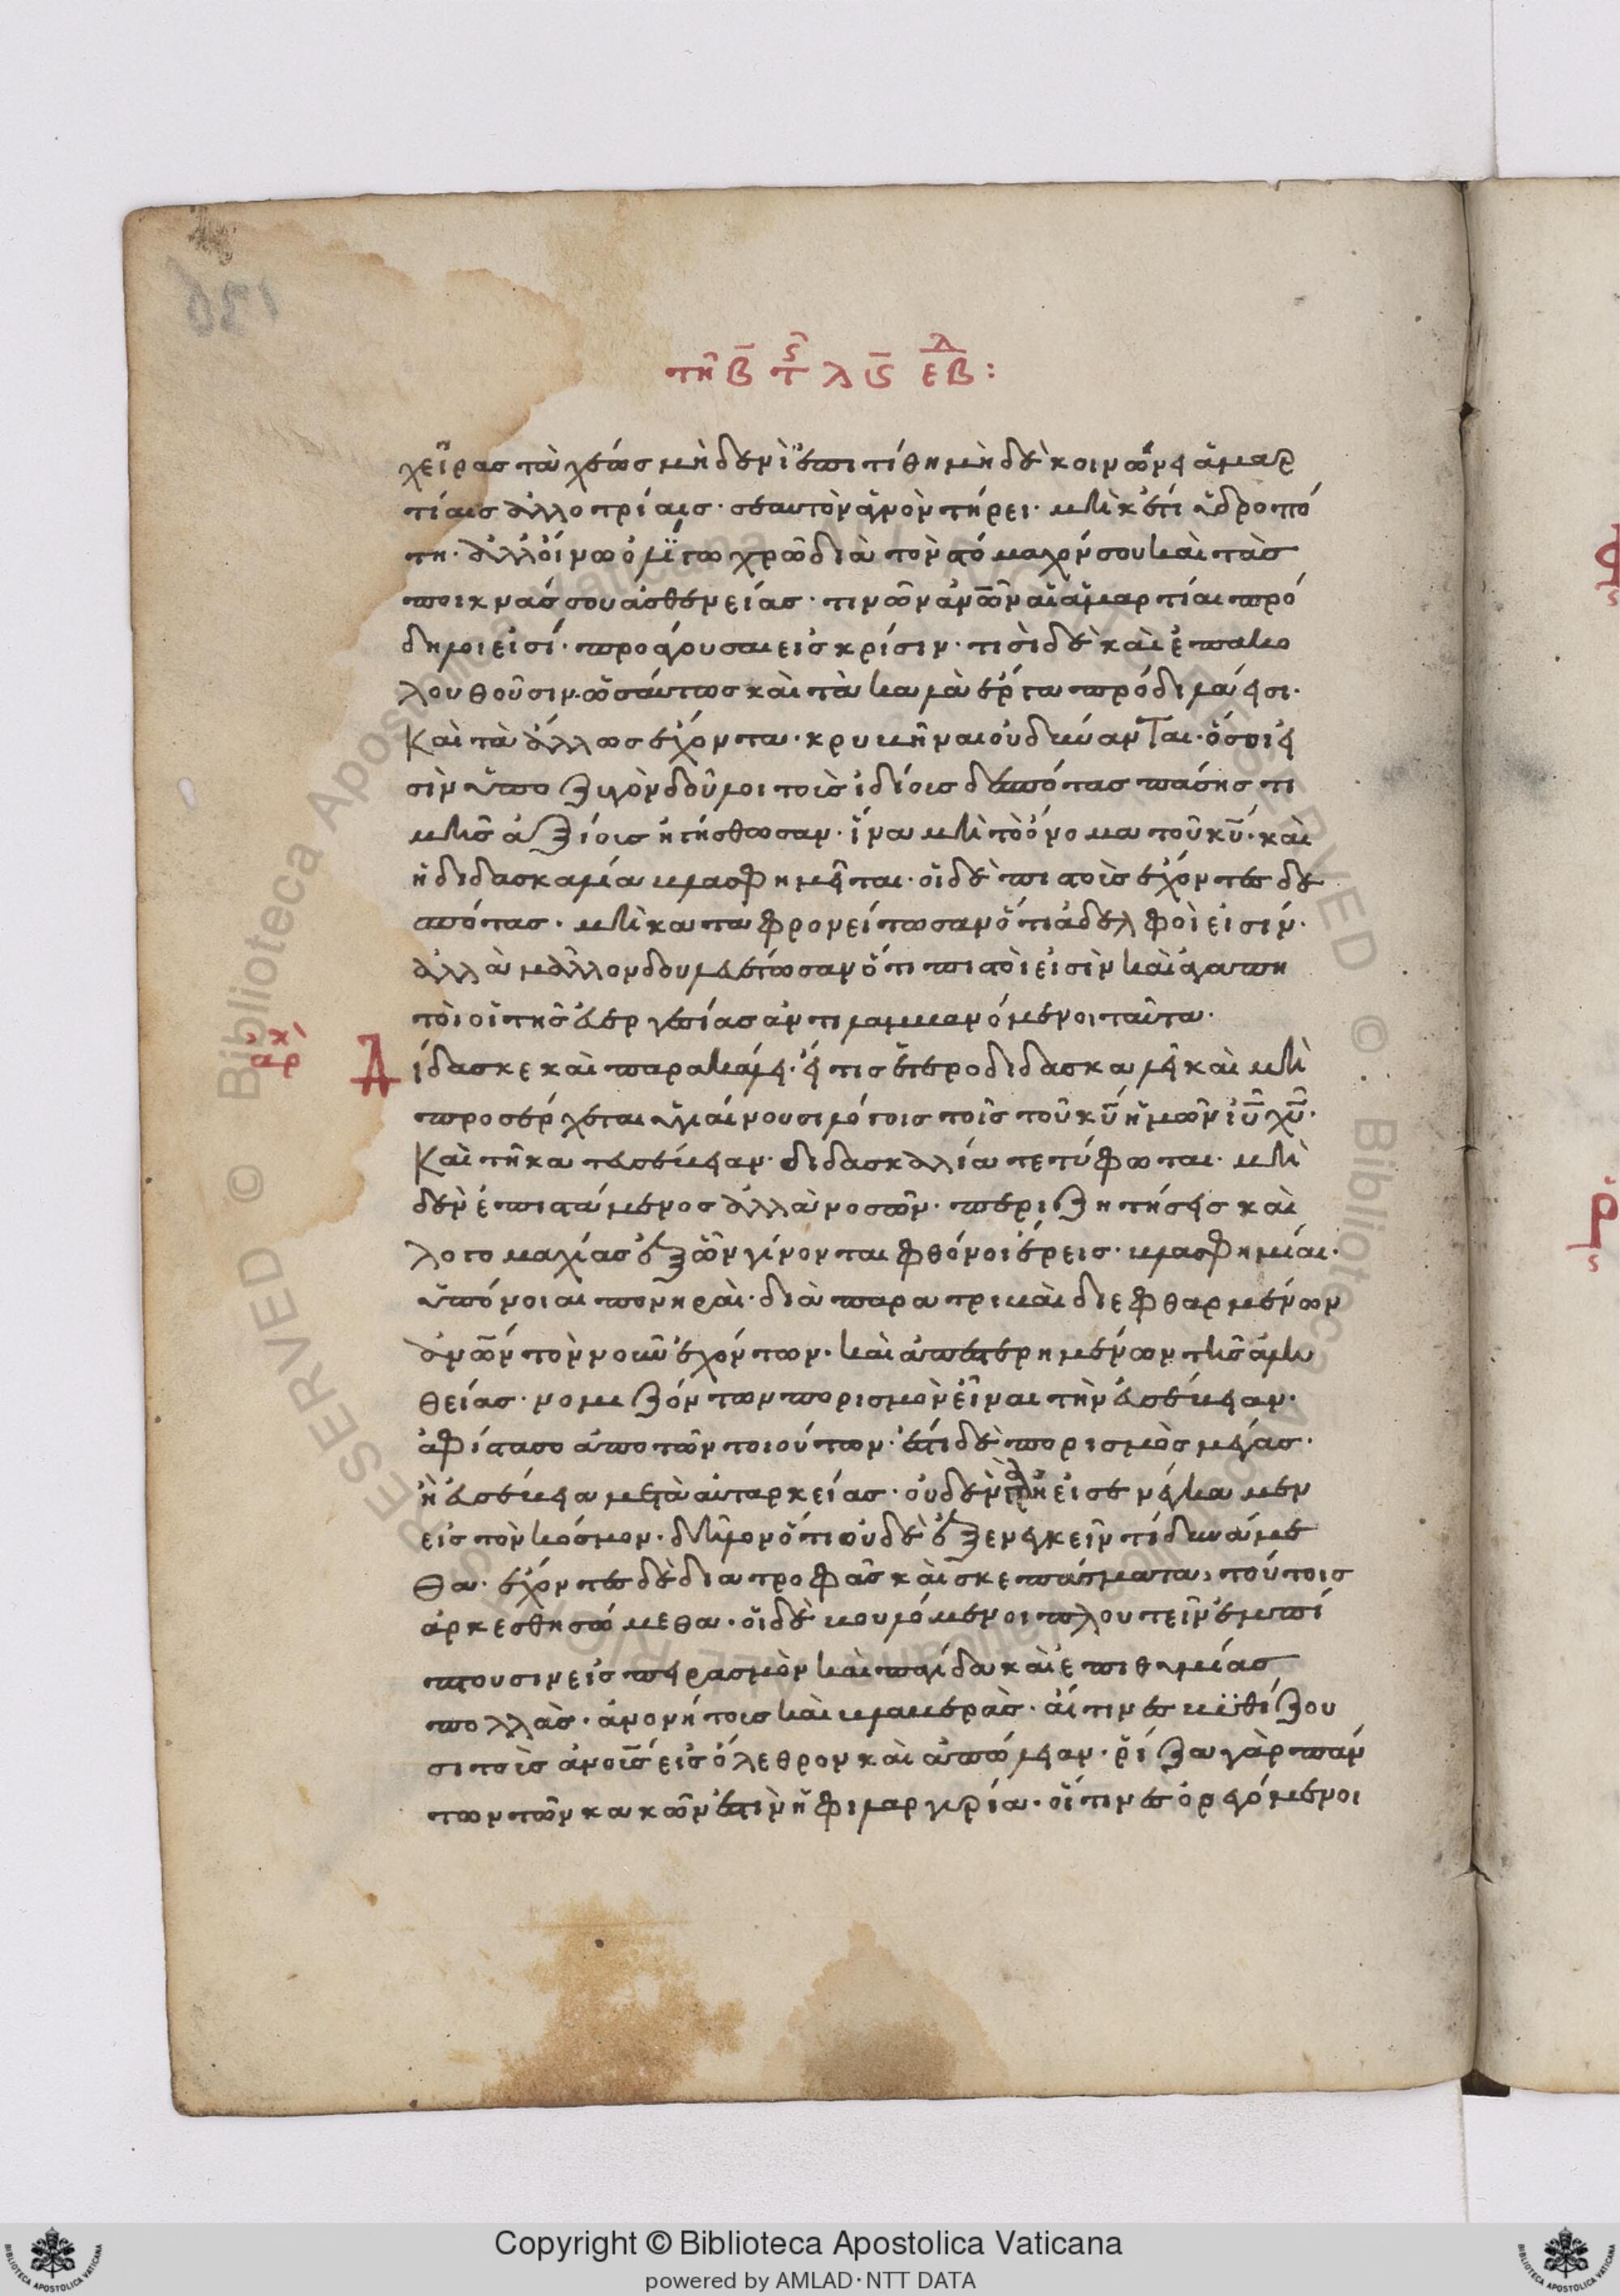 τῆ β̄ τ λ ις ἑβ:
χεῖρας ταχέως μηδενὶ ἐπιτίθη μὴ δὲ κοινώνει ἁμαρ
τίαις ἀλλοτρίαις· σεαυτὸν ἁγνὸν τήρει· μὴ κέτι ὑδροπό
τη· ἀλλ' οἴνω ὀλίγω χρῶ διὰ τὸν στόμαχόν σου καὶ τὰς
πυκνάς σου ἀσθενείας· τινῶν ἀν̅ω̅ν αἱ ἁμαρτίαι πρό
δηλοι εἰσί· προάγουσαι εἰς κρίσιν· τισὶ δὲ καὶ ἐπακο
λουθοῦσιν· ὡσάυτως καὶ τὰ καλὰ ἔργα πρόδηλά εἰσι·
Καὶ τὰ ἄλλως ἔχοντα· κρυβῆναι οὐ δύνανται· ὅσοι εἰ
σὶν ὑπο ζυγὸν δοῦλοι τοὶς ἰδίοις δεσπότας πάσης τι
μῆς ἀξίοις ἡγήσθωσαν· ἵνα μὴ τὸ ὄνομα τοῦ κ̅υ̅· καὶ
ἡ διδασκαλία βλασφημεῖται· οἱ δὲ πιστοὶς ἔχοντες δε
σπότας· μὴ καταφρονείτωσαν ὅτι ἀδελφοὶ εἰσίν·
ἀλλὰ μᾶλλον δουλευέτωσαν ὅτι πιστοὶ εἰσὶν καὶ ἀγαπη
τοὶ οἱ τῆς εὐεργεσίας ἀντιλαμβανόμενοι ταῦτα·
ἀρχ
Δίδασκε καὶ παρακάλει· εἴ τις ἑτεροδιδασκαλεῖ καὶ μὴ
προσέρχεται ὑγιαίνουσι λόγοις τοῖς τοῦ κ̅υ̅ ἡμῶν ἰ̅υ̅ χ̅υ̅·
Καὶ τῆ κατευσέβειαν· διδασκαλία τετύφωται· μὴ
δὲν ἐπιστάμενος ἀλλὰ νοσῶν· περι ζητήσεις καὶ
λογομαχίας ἐξ ὧν γίνονται φθόνοι ἔρεις· βλασφημίαι·
ὑπόνοιαι πονηραὶ· διὰ παρατριβαὶ διεφθαρμένων
ἀν̅ω̅ν τὸν νοῦν ἐχόντων· καὶ ἀπεστερημένων τῆς ἀλη
θείας· νομιζόντων πορισμὸν εἶναι τὴν εὐσέβειαν·
ἀφίστασο ἀπο τῶν τοιούτων· ἔστι δὲ πορισμὸς μέγας·
ἡ εὐσέβεια μετὰ αὐταρκείας· οὐδὲν γὰρ εἰσενείκαμεν
εἰς τὸν κόσμον· δῆλον ὅτι οὐδὲ ἐξενεγκεῖν τί δυνάμε
θα· ἔχοντες δὲ διατροφὰς καὶ σκεπάσματα, τούτοις
ἀρκεσθησώμεθα· οἱ δὲ βουλόμενοι πλουτεῖν ἐμπί
πτουσιν εἰς πειρασμὸν καὶ παγίδα καὶ ἐπιθυμίας
πολλὰς· ἀνοήτοις καὶ βλαβερὰς· αἵτινες βυθίζου
σι τοὶς ἀν̅ο̅ις εἰς ὄλεθρον καὶ ἀπώλειαν· ῥίζα γὰρ πάν
των τῶν κακῶν ἐστὶν ἡ φιλαργυρία· οἵτινες ὀρεγόμενοι
Copyright © Biblioteca Apostolica Vaticana
powered by AMLAD·NTT DATA